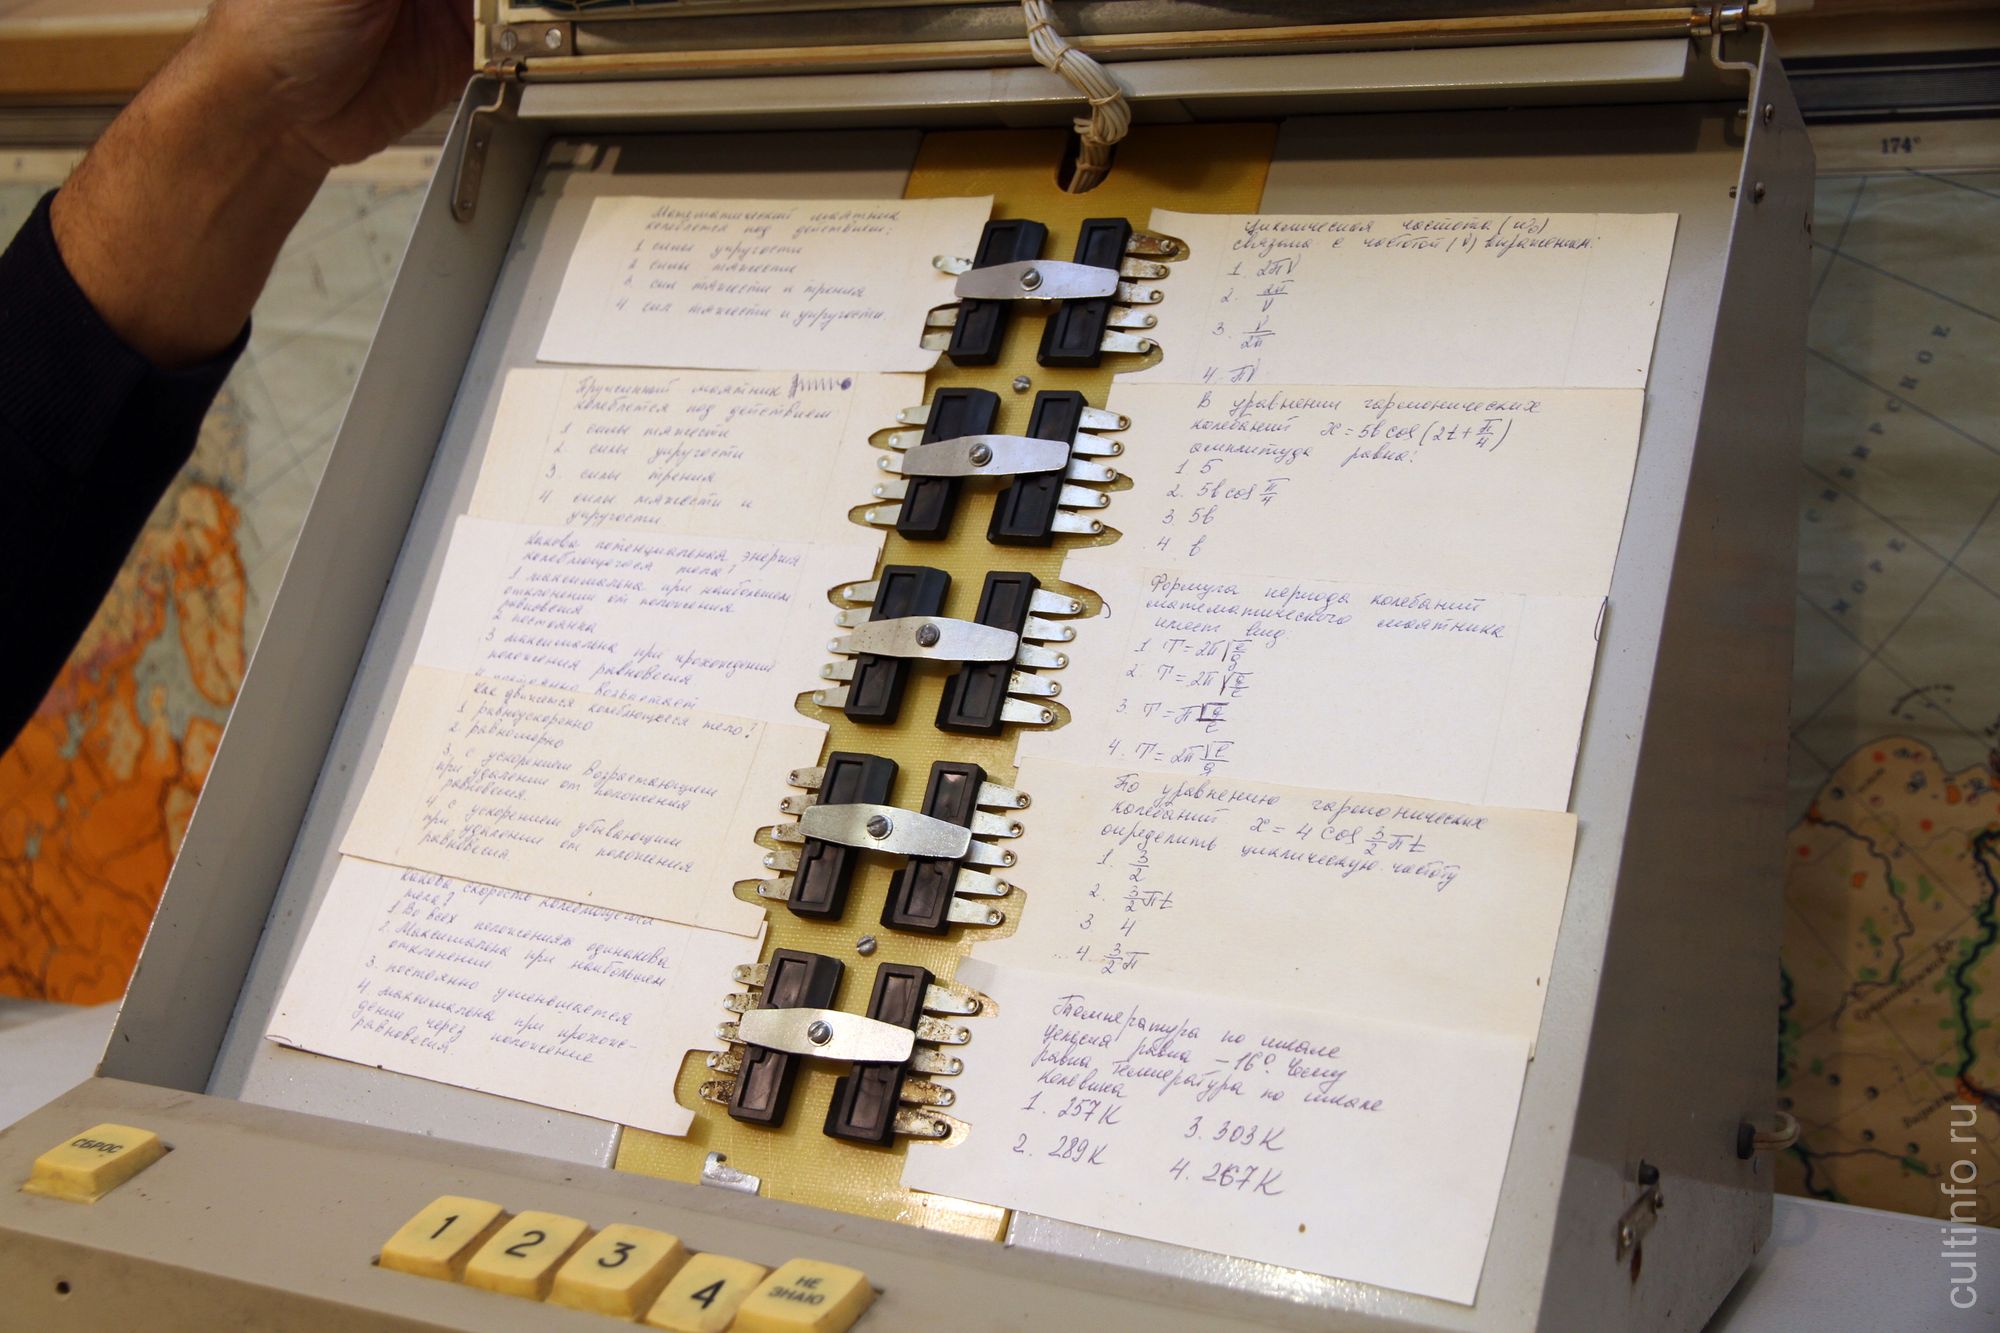 Математический маятник
колеблется под действием:
1 силы упругости
2 силы тяжести
3 сил тяжести и трения
4 сил тяжести и упругости.
Пружинный маятник
колеблется под действием
1 силы тяжести
2. силы упругости
3. силы трения
4 силы тяжести и
упругости
Какова потенциальная энергия
колеблющегося тела?
1 максимальна при наибольшем
отклонении от положения
равновесия
2 постоянна
3 максимальна при прохождении
положения равновесия
4 постоянно возрастает
Как движется колеблющееся тело?
1 равноускоренно
2 равномерно
3. с ускорением возрастающим
при удалении от положения
равновесия.
4. с ускорением убывающим
при удалении от положения
равновесия.
Какова скорость колеблющегося
тела?
1. Во всех положениях одинакова
2. Максимальна при наибольшем
отклонении
3. постоянно уменьшается
4. максимальна при прохож-
дении через положение
равновесия.
Циклическая частота (ω₀)
связана с частотой (ν) выражением:
1. 2πν
2. 2π/ν
3. ν/2π
4. πν
В уравнении гармонических
колебаний x = 5b cos (2t + π/4)
амплитуда равна:
1. 5
2. 5b cos π/4
3. 5b
4. b
Формула периода колебаний
математического маятника
имеет вид:
1. T = 2π√
2. T = 2π√
3. T = π√g/ℓ
4. T = 2π√ℓ/g
По уравнению гармонических
колебаний x = 4 cos 3/2 πt
определить циклическую частоту
1. 3/2
2. 3/2 πt
3. 4
4. 3/2 π
Температура по шкале
Цельсия равна -16°. Чему
равна температура по шкале
Кельвина
1. 257К 3. 303К
2. 289К 4. 267К
СБРОС
1 2 3 4 НЕ
ЗНАЮ
174°
cultinfo.ru